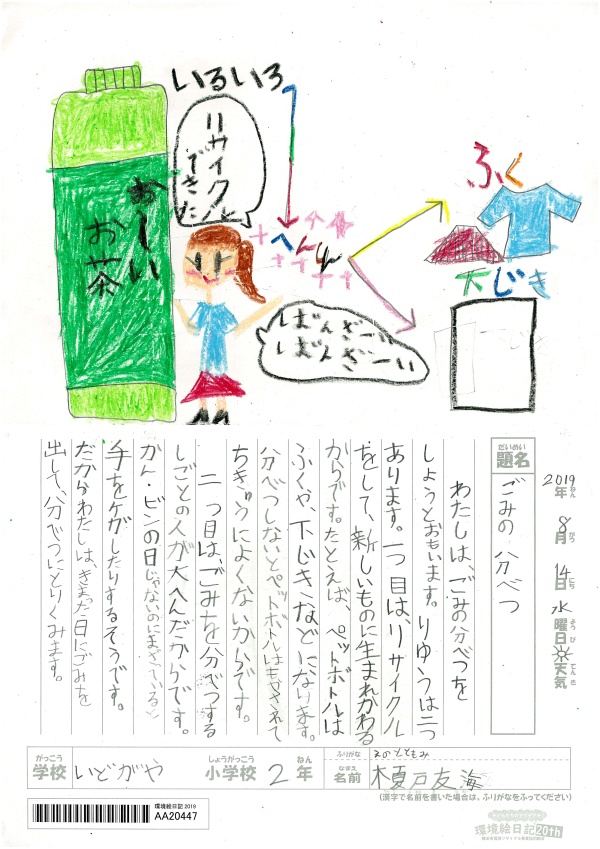 いろいろ
リサイクル
できた!!
おーい
お茶
へんしん
ばんざーい
ばんざーい
ふく
下じき
2019年 8月 14日 水曜日 天気
ねん がつ にち ようび てんき
だいめい
題名
ごみの分べつ
わたしは、ごみの分べつを
しようとおもいます。りゆうは二つ
あります。一つ目はリサイクル
をして、新しいものに生まれかわる
からです。たとえば、ペットボトルは
ふくや、下じきなどになります。
分べつしないとペットボトルはもやされて
ちきゅうによくないからです。
二つ目は、ごみを分べつする
しごとの人が大へんだからです。
かん・ビンの日じゃないのにまざっていると
手をケガしたりするそうです。
だからわたしは、きまった日にごみを
出して、分べつにとりくみます。
がっこう
学校
いどがや
しょうがっこう
小学校
2
ねん
年
ふりがな
えのとともみ
なまえ
名前
榎戸友海
(漢字で名前を書いた場合は、ふりがなをふってください)
環境絵日記 2019
AA20447
環境絵日記 20th